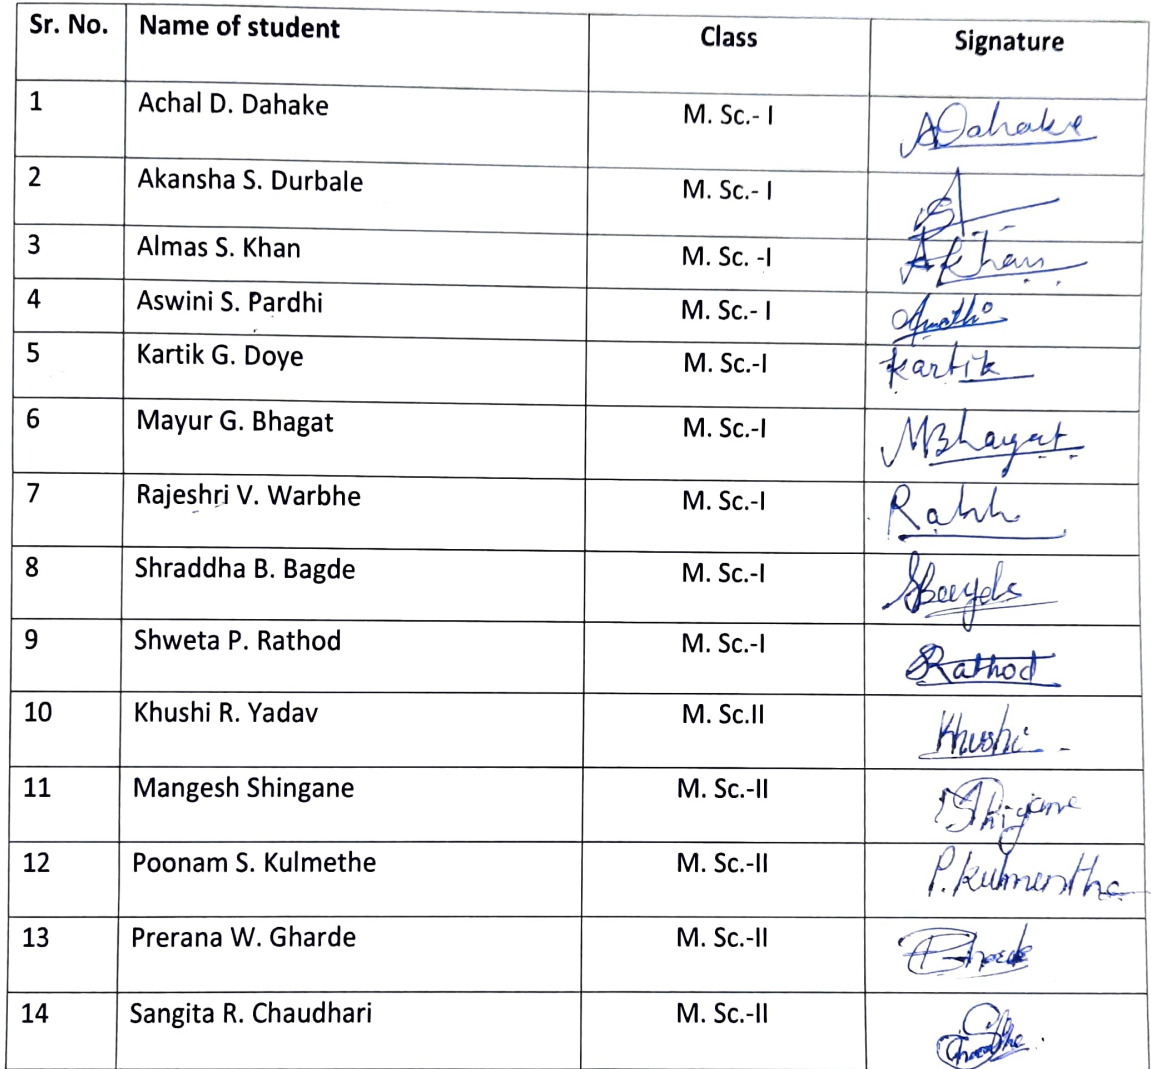 Sr. No. Name of student Class Signature
1 Achal D. Dahake M. Sc.- I ADahake
2 Akansha S. Durbale M. Sc.- I
3 Almas S. Khan M. Sc. -I AKhan
4 Aswini S. Pardhi M. Sc.- I
5 Kartik G. Doye M. Sc.-I Kartik
6 Mayur G. Bhagat M. Sc.-I MBhagat
7 Rajeshri V. Warbhe M. Sc.-I
8 Shraddha B. Bagde M. Sc.-I
9 Shweta P. Rathod M. Sc.-I SRathod
10 Khushi R. Yadav M. Sc.II Khushi
11 Mangesh Shingane M. Sc.-II
12 Poonam S. Kulmethe M. Sc.-II P.Kulmenthe
13 Prerana W. Gharde M. Sc.-II
14 Sangita R. Chaudhari M. Sc.-II